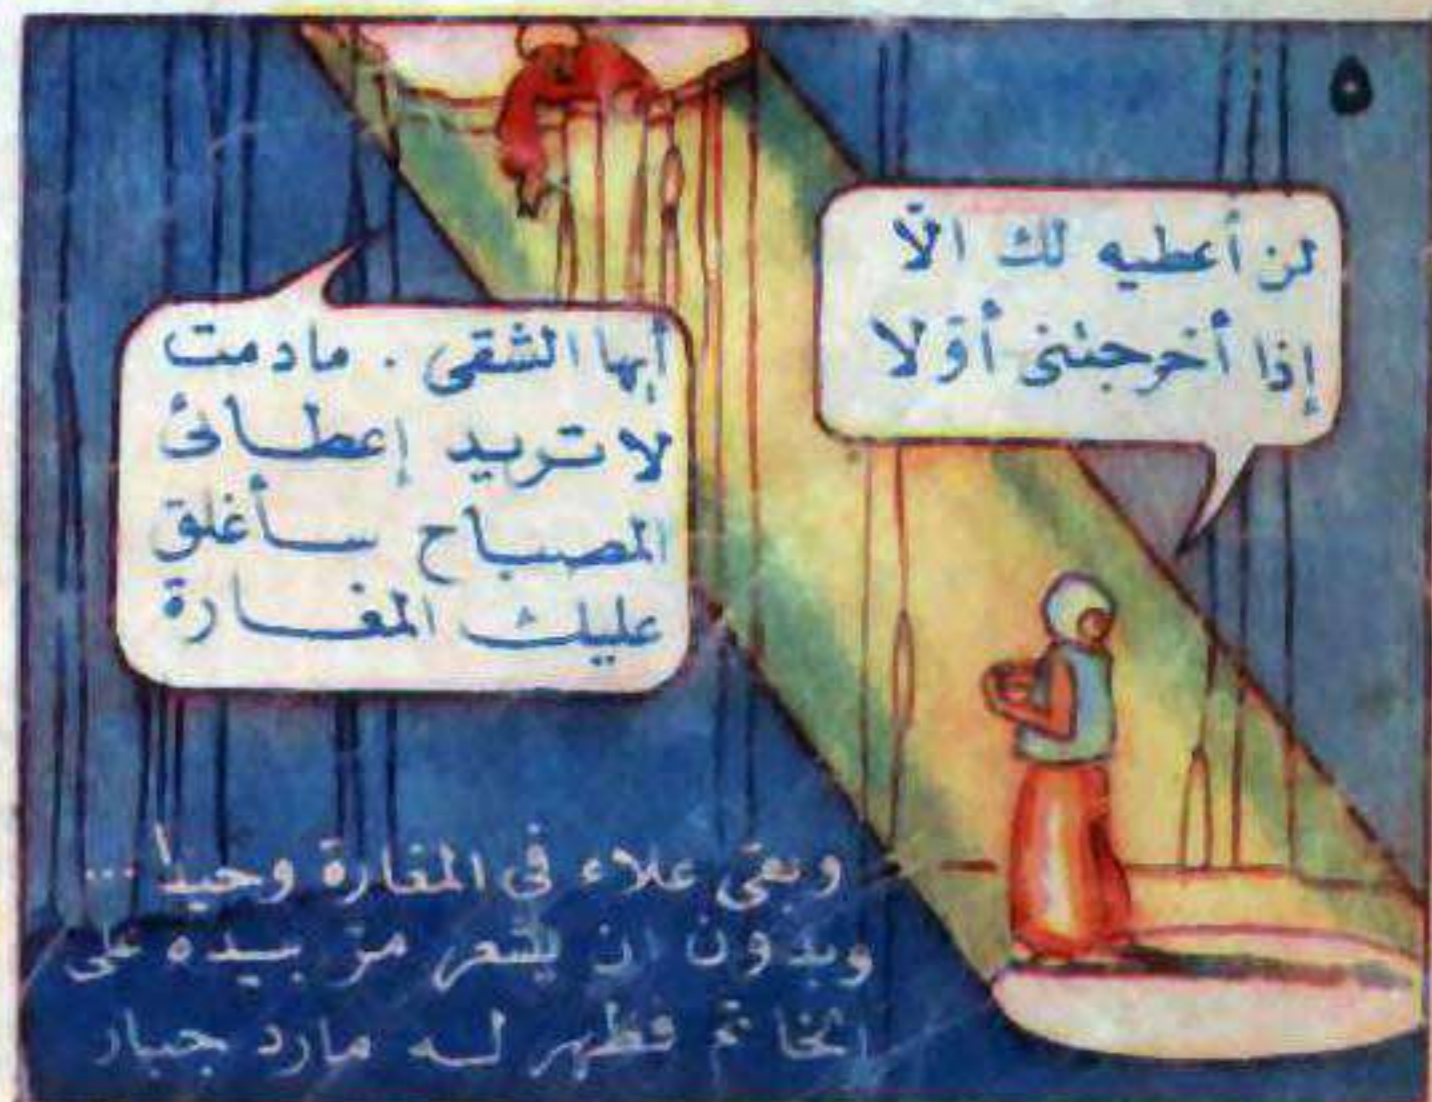 ٥
لن أعطيه لك الاّ
إذا أخرجتنى أوّلا
أيها الشقى . مادمت
لا تريد إعطائى
المصباح سأغلق
عليك المغارة
وبقى علاء فى المغارة وحيدا ...
وبدون ان يشعر مرّ بيده على
الخاتم فظهر له مارد جبار